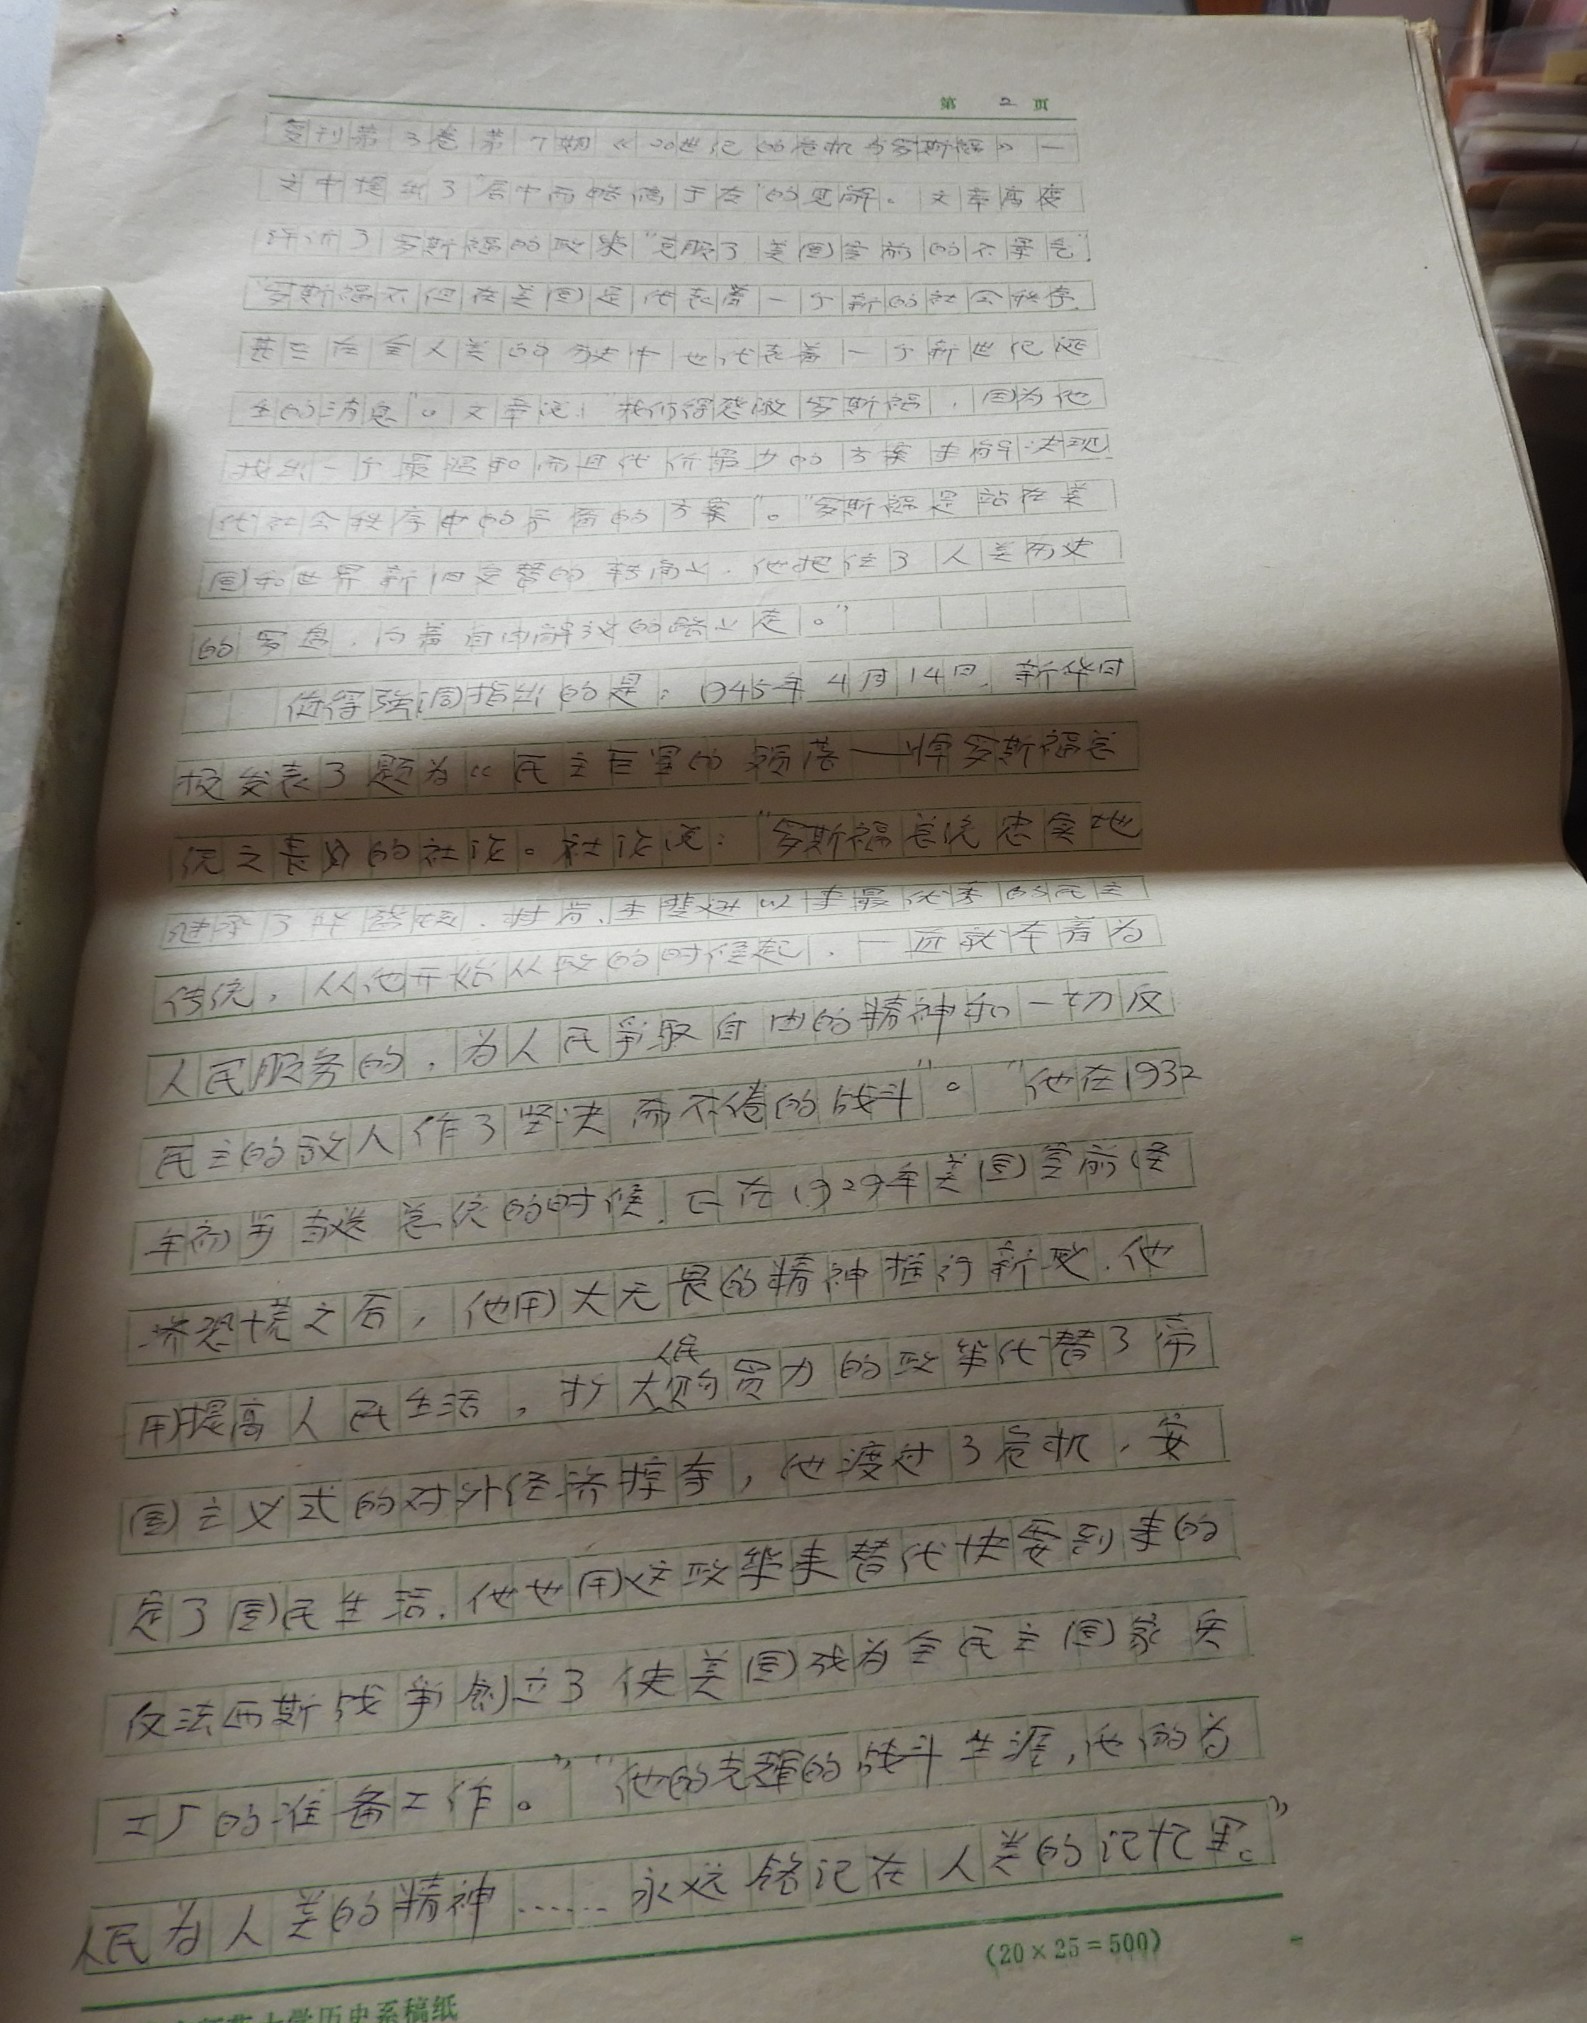 第 2 页
复刊第3卷第7期《20世纪的危机与罗斯福》一
文中提出了"居中而略偏于左"的见解。文章高度
评价了罗斯福的政策"克服了美国空前的不景气",
"罗斯福不但在美国是代表着一个新的社会秩序,
甚至在全人类的历史中也代表着一个新世纪诞
生的消息"。文章说:"我们得感激罗斯福,因为他
找出一个最温和而且代价最少的方案来解决现
代社会秩序中的矛盾的方案"。"罗斯福是站在美
国和世界新旧交替的转角上,他把住了人类历史
的罗盘,向着自由解放的路上走。"
值得强调指出的是:1945年4月14日,新华日
报发表了题为《民主巨星的殒落——悼罗斯福总
统之丧》的社论。社论说:"罗斯福总统忠实地
继承了华盛顿、林肯、杰斐逊以来最优秀的民主
传统,从他开始从政的时候起,一直就本着为
人民服务的,为人民争取自由的精神和一切反
民主的敌人作了坚决而不倦的战斗"。"他在1932
年初步当选总统的时候,已在1929年美国空前经
济恐慌之后,他用大无畏的精神推行新政,他
用提高人民生活,扩大人民购买力的政策代替了帝
国主义式的对外经济掠夺,他渡过了危机,安
定了国民生活,他也用这政策来替代快要到来的
反法西斯战争创立了使美国成为全民主国家兵
工厂的准备工作。""他的光辉的战斗生涯,他的为
人民为人类的精神……永远铭记在人类的记忆里。"
(20×25=500)
大学历史系稿纸